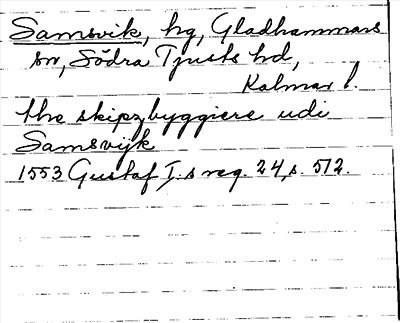 Samsvik, hg, Gladhammars
sn, Södra Tjusts hd,
Kalmar l.
the skipzbyggiere udi
Samsvijk
1553 Gustaf I:s reg. 24, s. 512.